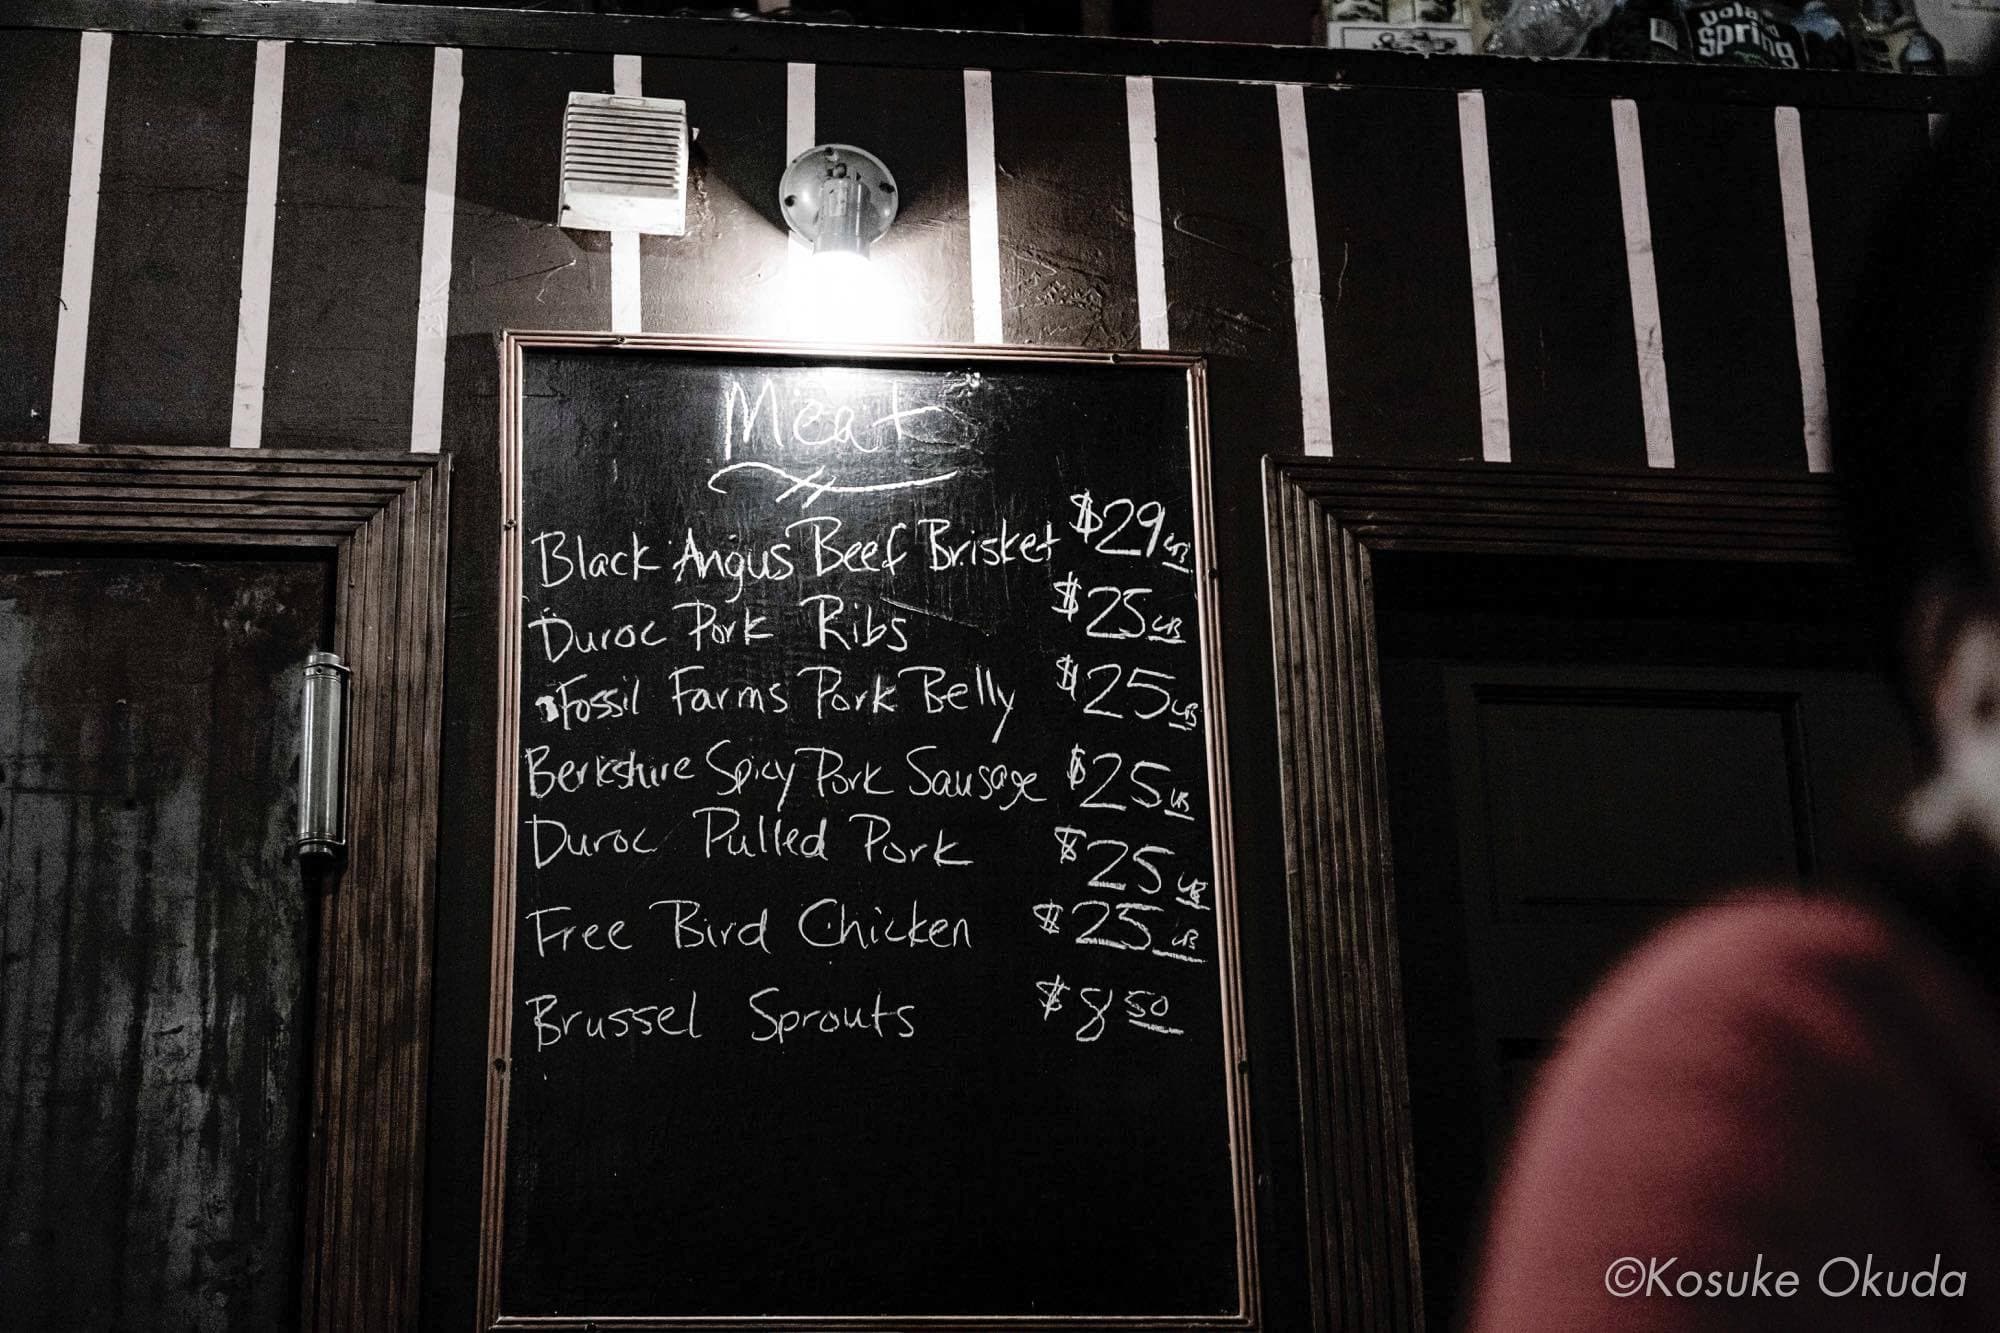 Poland Spring
Meat
Black Angus Beef Brisket $29 LB
Duroc Pork Ribs $25 LB
Fossil Farms Pork Belly $25 LB
Berkshire Spicy Pork Sausage $25 LB
Duroc Pulled Pork $25 LB
Free Bird Chicken $25 LB
Brussel Sprouts $8 50
©Kosuke Okuda